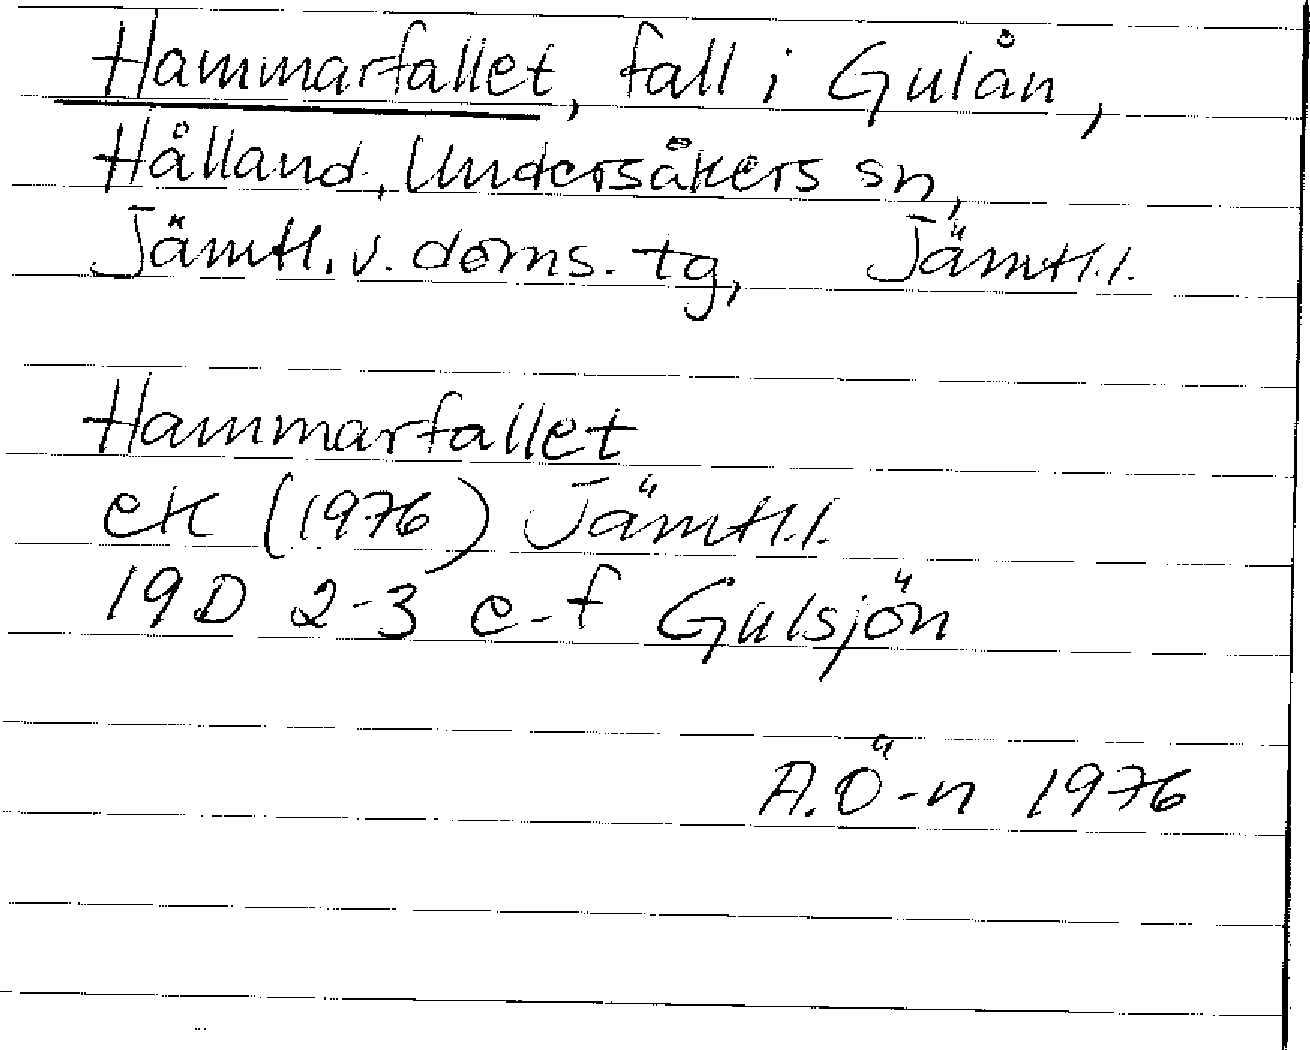 Hammarfallet, fall i Gulån,
Hålland, Undersåkers sn,
Jämtl. v. doms. tg, Jämtl.l.
Hammarfallet
ek (1976) Jämtl.l.
19D 2-3 e-f Gulsjön
A.Ö-n 1976